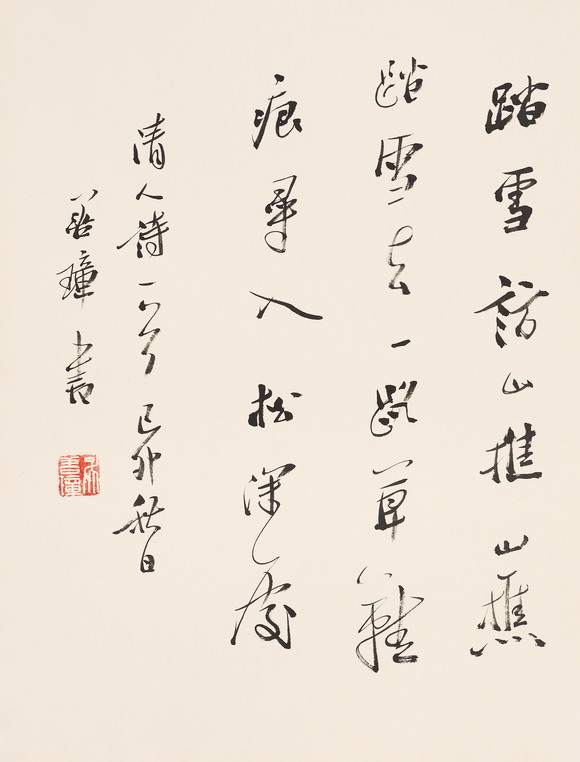 踏雪訪山樵山樵
踏雪去一路草鞋
痕尋入松深處
清人詩一首己卯秋日
善璋書